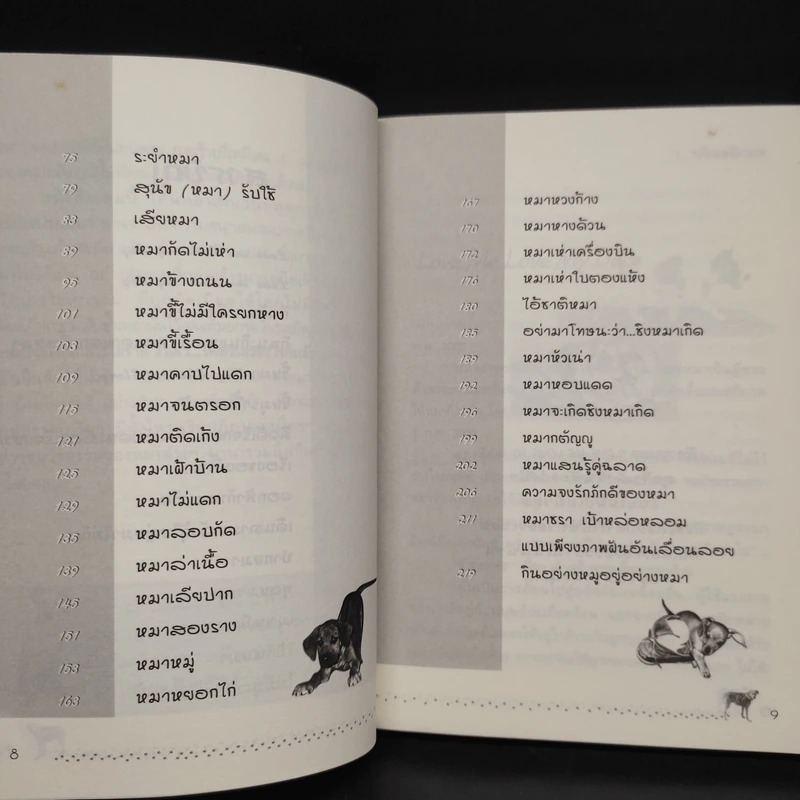 75 ระยำหมา
79 สุนัข (หมา) รับใช้
83 เสียหมา
89 หมากัดไม่เห่า
95 หมาข้างถนน
101 หมาขี้ไม่มีใครยกหาง
103 หมาขี้เรื้อน
109 หมาคาบไปแดก
115 หมาจนตรอก
121 หมาติดเก้ง
125 หมาเฝ้าบ้าน
129 หมาไม่แดก
135 หมาลอบกัด
139 หมาล่าเนื้อ
145 หมาเลียปาก
151 หมาสองราง
153 หมาหมู่
163 หมาหยอกไก่
8
167 หมาหวงก้าง
170 หมาหางด้วน
172 หมาเห่าเครื่องบิน
176 หมาเห่าใบตองแห้ง
180 ไอ้ชาติหมา
185 อย่ามาโทษนะว่า...ชิงหมาเกิด
189 หมาหัวเน่า
192 หมาหอบแดด
196 หมาจะเกิดชิงหมาเกิด
199 หมากตัญญู
202 หมาแสนรู้คู่ฉลาด
206 ความจงรักภักดีของหมา
211 หมาชรา เบ้าหล่อหลอม
แบบเพียงภาพฝันอันเลื่อนลอย
219 กินอย่างหมูอยู่อย่างหมา
9